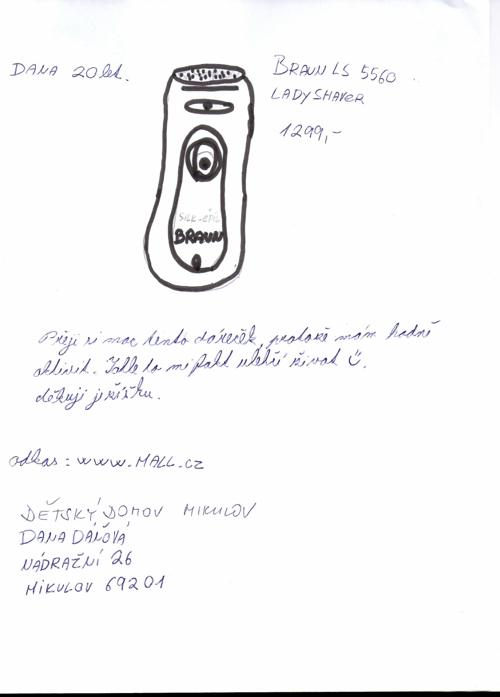 DANA 20 let.
BRAUN LS 5560
LADY SHAVER
1299,-
SILK-EPIL
BRAUN
Přeji si moc tento dáreček, protože mám hodně
aktivit. Tohle to mi fakt ulehčí život
děkuji ježíšku.
odkas: www.MALL.cz
DĚTSKÝ DOMOV MIKULOV
DANA
NÁDRAŽNÍ 26
MIKULOV 69201